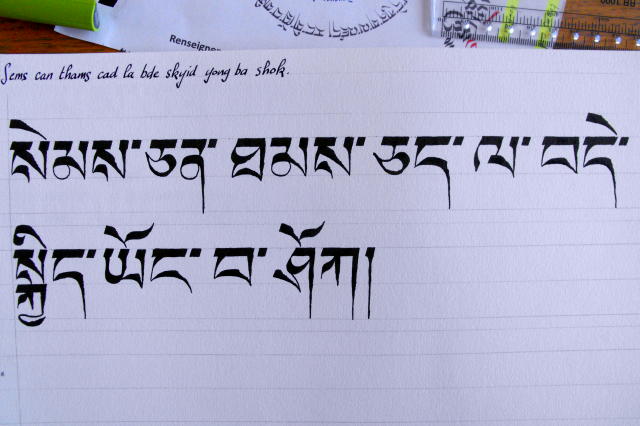 Renseigner
Sems can thams cad la bde skyid yong ba shok.
སེམས་ཅན་ཐམས་ཅད་ལ་བདེ་
སྐྱིད་ཡོང་བ་ཤོཀ།